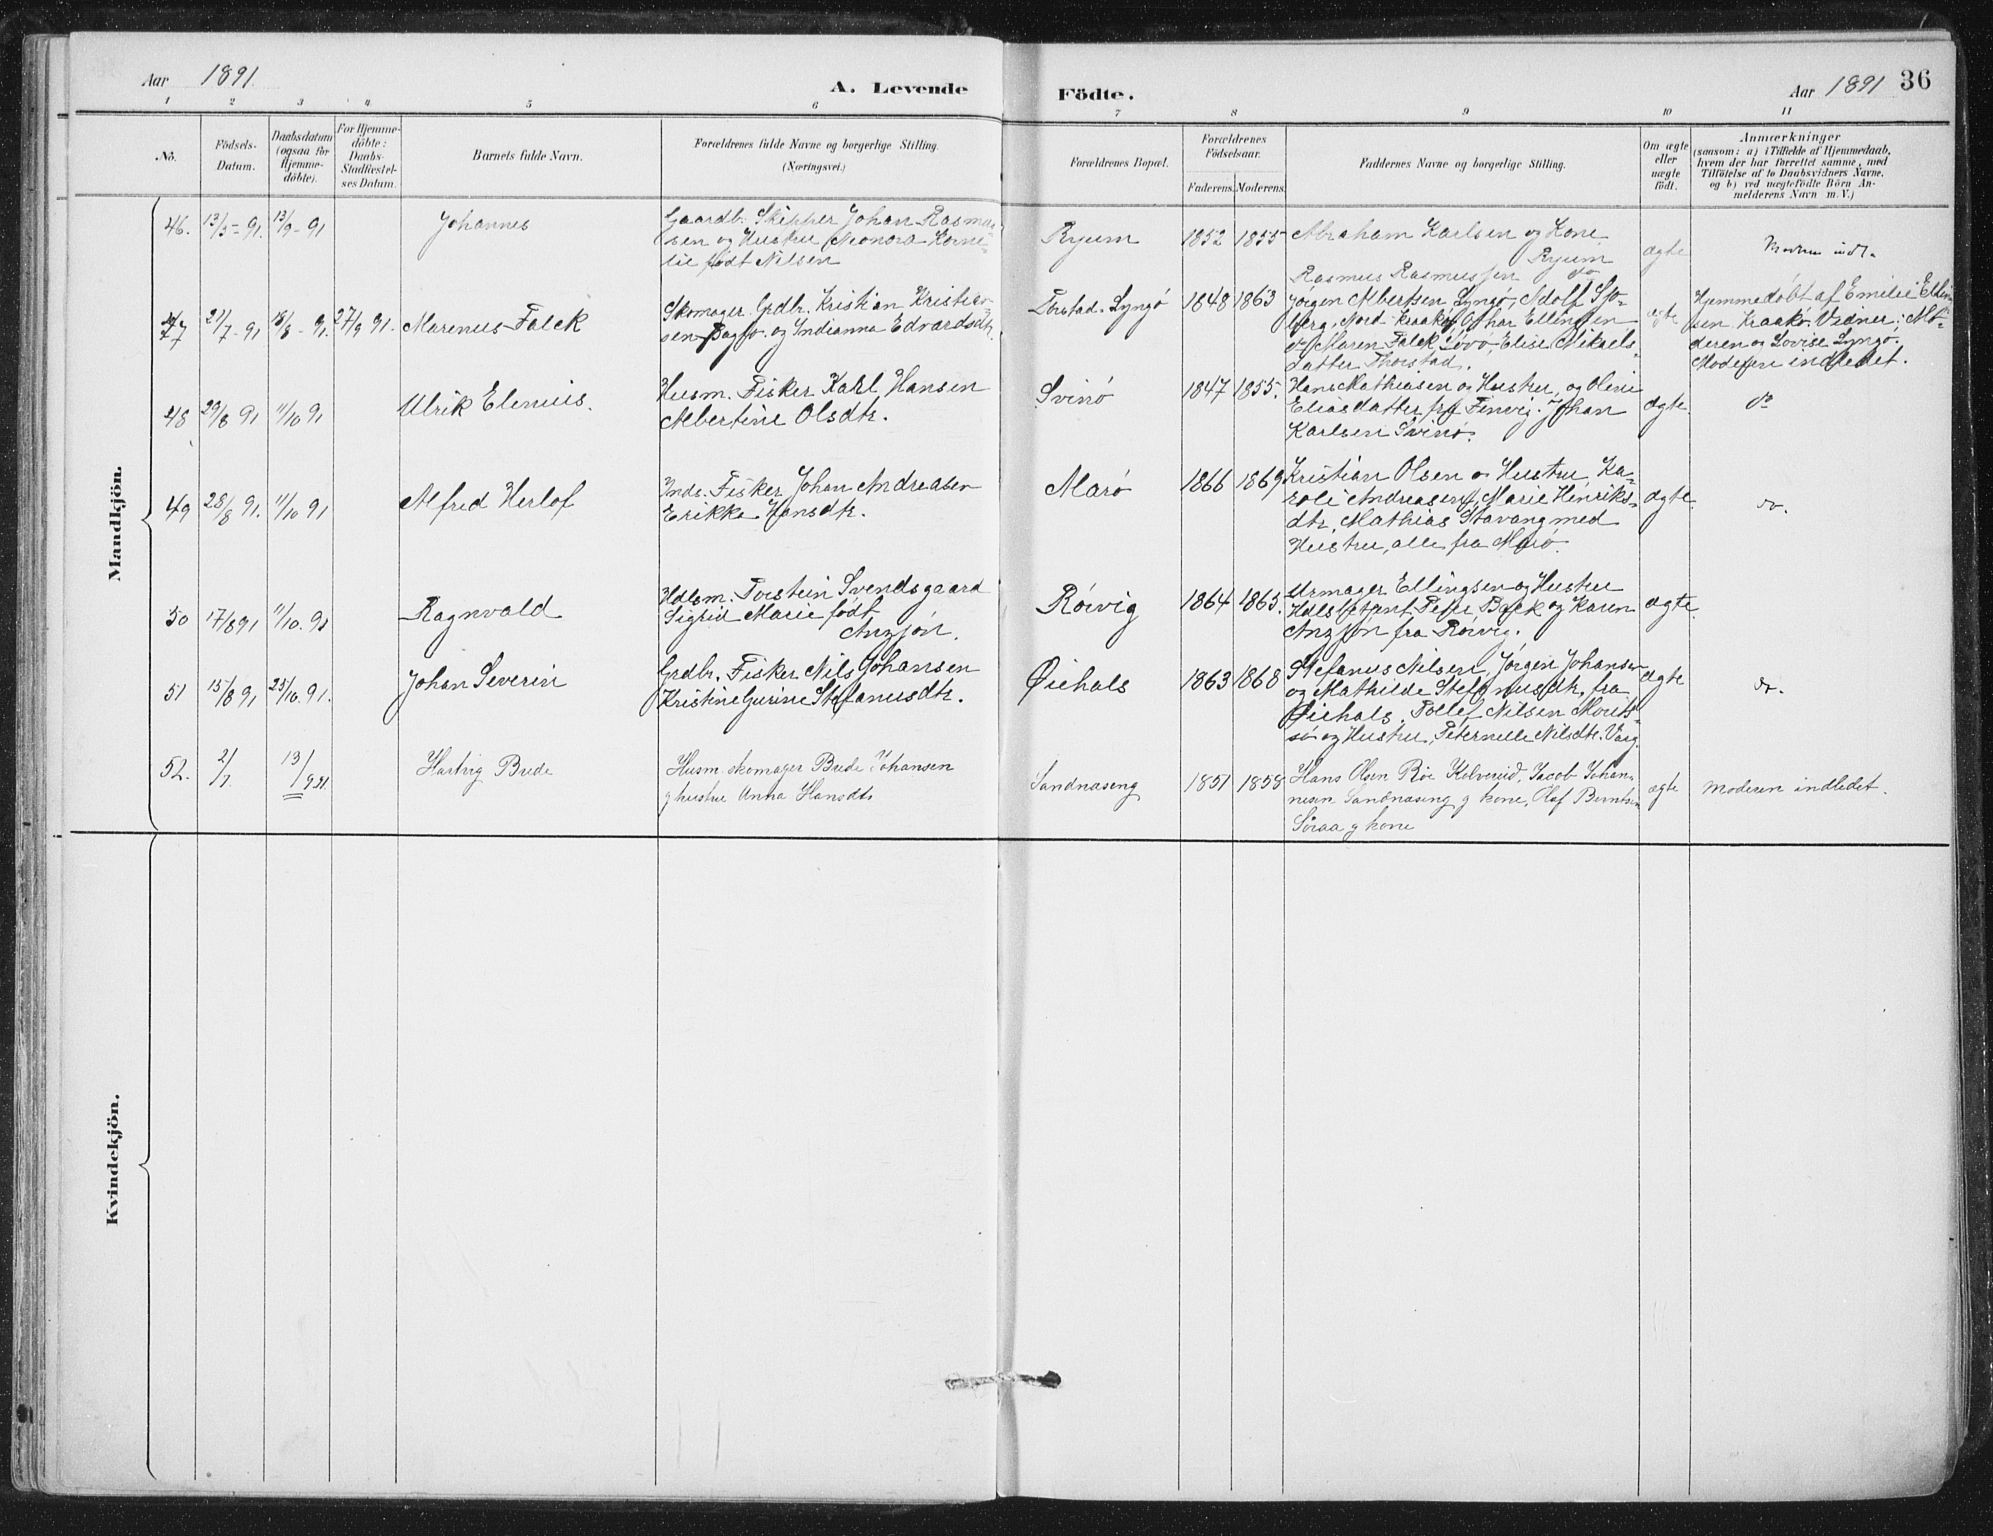 Aar 1891.
A. Levende Födte.
Aar 1891 36
1 2 3 4 5 6 7 8 9 10 11
No.
Födsels-
Datum.
Daabsdatum
(ogsaa for
Hjemme-
döbte).
For Hjemme-
döbte:
Daabs-
Stadfæstel-
ses Datum.
Barnets fulde Navn.
Forældrenes fulde Navne og borgerlige Stilling.
(Næringsvei.)
Forældrenes Bopæl.
Forældrenes
Födselsaar.
Faderens. Moderens.
Faddernes Navne og borgerlige Stilling.
Om ægte
eller
uægte
födt.
Anmærkninger
(saasom: a) i Tilfælde af Hjemmedaab,
hvem der har forrettet samme, med
Tilföielse af to Daabsvidners Navne,
og b) ved uægtefödte Börn An-
melderens Navn m. V.)
Mandkjön.
46. 13/5 - 91. 13/9 - 91
Johannes
Gaardb. Skipper Johan Rasmus-
sen og Hustru Neonora Korne-
lie født Nilsen
Ryum
1852 1855
Abraham Karlsen og Kone
Ryum
Rasmus Rasmussen do
ægte
Modern indl.
47 21/7 - 91 18/8 - 91. 27/9 91.
Marenus Falck
Skomager. Grdbr. Kristian Kristian-
sen og Indianna Edvardsdtr.
Torstad. Lyngö
1848 1863
Jörgen Albertsen Lyngö, Adolf Sjo-
berg, Nord Kraakö, Othar Ellingsen
do Maren Falck Lövö, Elise Mikaels-
datter Thorstad.
ægte
Hjemmedöbt af Emilie Elling-
sen Kraakö. Vidner: Mo-
deren og Lovise Lyngö.
Moderen indledet.
48 29/8 91 11/10 91
Ulrik Elenius.
Husm. Fisker Karl Hansen
Albertine Olsdtr.
Svinö
1847 1855.
Hans Mathiasen og Hustru, og Oline
Eliasdatter fra Finvig. Johan
Karlsen Svinö.
ægte.
do
49 28/8 91. 11/10 91
Alfred Herlof
Inds. Fisker Johan Andreasen
Erikka Hansdtr.
Marö
1866 1869
Kristian Olsen og Hustru, Ka-
roli Andreasen, Marie Henriks-
dtr, Mathias Stavang med
Hustru, alle fra Marö.
ægte.
do.
50 17/8 91 11/10. 91
Ragnvald
Hdlsm. Torstein Svendsgaard
Sigrid Marie født
Anzjön.
Rörvig
1864 1865.
Urmager Ellingsen og Hustru
Hdlsbetjent Petter Bock og Karen
Anzjön fra Rörvig.
ægte.
51 15/8 91 25/10. 91.
Johan Severin
Grdbr. Fisker Nils Johansen
Kristine Gurine Stefanusdtr.
Øiehals
1863 1868
Stefanus Nilsen, Jörgen Johansen
og Mathilde Stefanusdtr, fra
Øiehals. Tollef Nilsen Morits-
sö og Hustru, Peternelle Nilsdtr. Varg.
ægte
do.
52. 2/1. 13/9 91
Hartvig Brede
Husm. skomager Brede Johansen
g hustru Anna Hansdtr
Sandnæseng
1851 1858
Hans Olsen Röe Kolvereid, Jacob Johan-
nesen Sandnæseng g kone, Olaf Berntsen
Søraa g kone
ægte
Moderen indledet.
Kvindekjön.